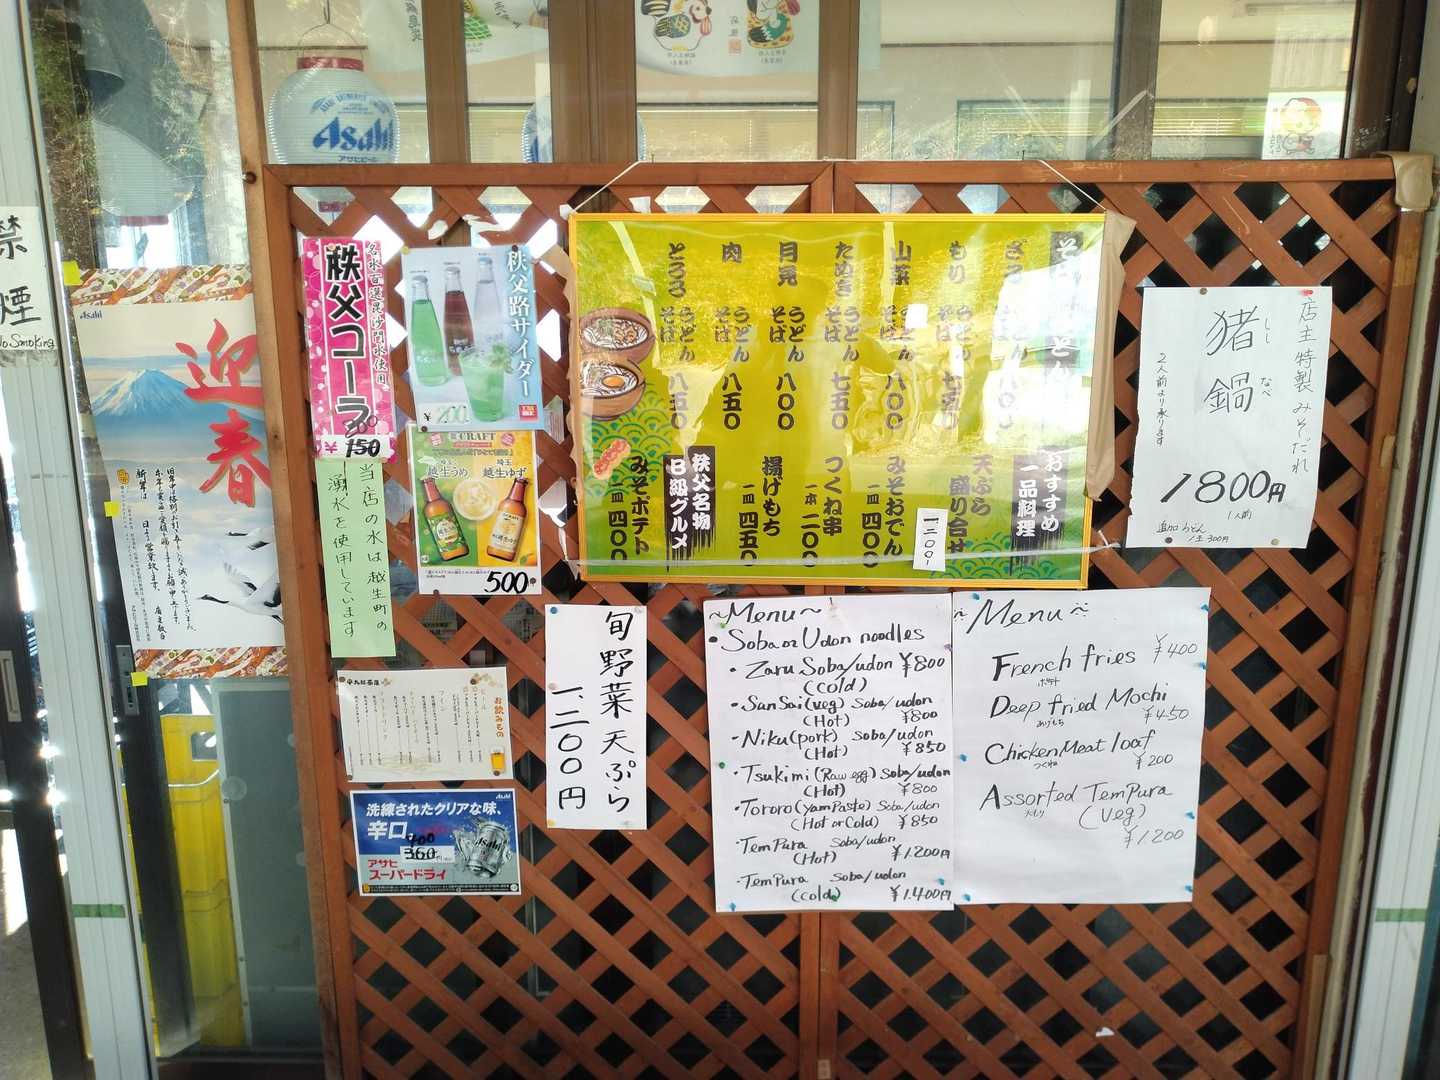 禁煙
No Smoking
Asahi
迎春
Asahi
アサヒビール
名水百選毘沙門水使用
秩父コーラ
200
¥150
秩父路サイダー
¥200
CRAFT
埼玉
越生うめ
埼玉
越生ゆず
500円
当店の水は越生町の
湧水を使用しています
お飲みもの
ビール
Asahi
洗練されたクリアな味、
辛口
400
360
アサヒ
スーパードライ
もり
うどん
そば
山菜
八〇〇
たぬき
うどん
そば
七五〇
月見
うどん
そば
八〇〇
肉
うどん
そば
八五〇
とろろ
うどん
そば
八五〇
おすすめ
一品料理
天ぷら
盛り合せ
一二〇〇-
みそおでん
一皿 四〇〇
つくね串
一本 二〇〇
揚げもち
一皿 四五〇
秩父名物
B級グルメ
みそポテト
一皿 四〇〇
店主特製みそだれ
猪鍋
しし なべ
2人前より承ります
1800円
1人前
追加うどん
1玉300円
旬野菜天ぷら
一、二〇〇円
~Menu~
• Soba or Udon noodles
• Zaru Soba/udon ¥800
(cold)
• SanSai(veg) Soba/udon
(Hot) ¥800
• Niku(pork) Soba/udon
(Hot) ¥850
• Tsukimi(Raw egg) Soba/udon
(Hot) ¥800
• Tororo(yam Paste) Soba/udon
(Hot or Cold) ¥850
• TemPura Soba/udon
(Hot) ¥1.200円
• TemPura Soba/udon
(cold) ¥1.400円
~Menu~
French fries ¥400
ポテト
Deep fried Mochi
あげもち ¥450
Chicken Meat loaf
つくね ¥200
Assorted TemPura
(Veg)
¥1.200